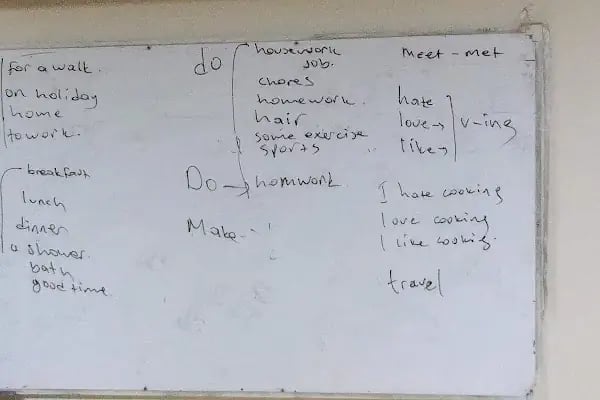 for a walk.
on holiday
home
to work.
breakfast
lunch
dinner
a shower.
bath
good time.
do
housework
job.
chores
homework.
hair
some exercise
sports
Do → homwork.
Make
meet - met
hate
love →
like →
V-ing
I hate cooking
I love cooking
I like cooking.
travel